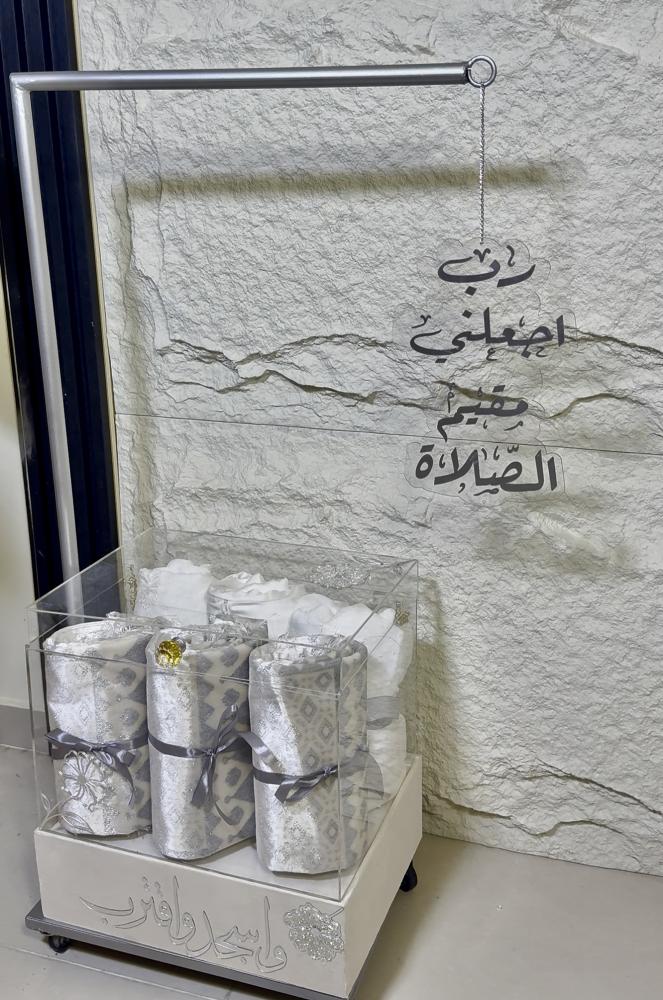 رب
اجعلني
مقيم
الصّلاة
واسجد واقترب